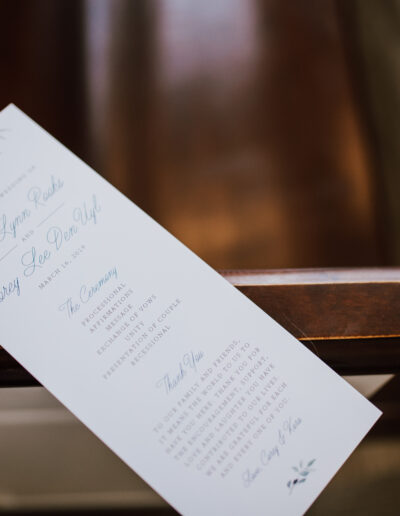 WEDDING OF
Lynn Rooks
AND
Corey Lee Den Uyl
MARCH 16, 2019
The Ceremony
PROCESSIONAL
AFFIRMATIONS
MESSAGE
EXCHANGE OF VOWS
UNITY
PRESENTATION OF COUPLE
RECESSIONAL
Thank You
TO OUR FAMILY AND FRIENDS,
IT MEANS THE WORLD TO US TO
HAVE YOU HERE. THANK YOU FOR
THE ENCOURAGEMENT, SUPPORT,
LOVE AND LAUGHTER YOU HAVE
CONTRIBUTED TO OUR LIVES.
WE ARE GRATEFUL FOR EACH
AND EVERY ONE OF YOU.
Love, Corey & Kara